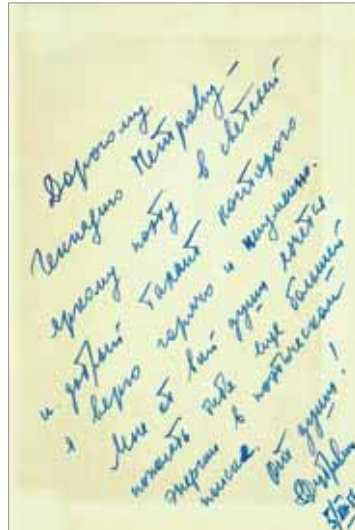 Дорогому
Геннадию Петрову –
яркому поэту в светлый
и добрый талант которого
я верю горячо и неуменно.
Мне от всей души хочется
пожелать тебе еще большей
энергии в поэтическом
поиске.
От души!